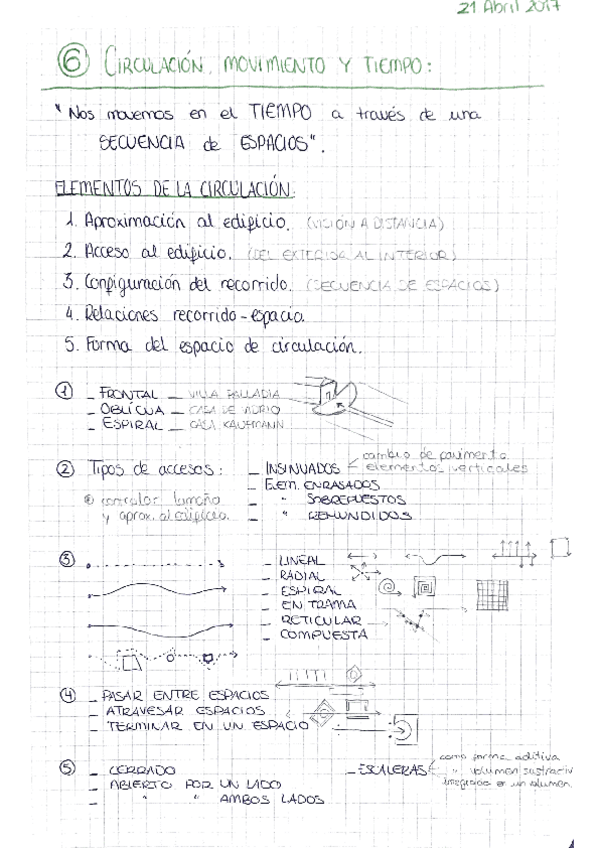 21 Abril 2017
⑥ CIRCULACIÓN, MOVIMIENTO Y TIEMPO:
"Nos movemos en el TIEMPO a través de una
SECUENCIA de ESPACIOS".
ELEMENTOS DE LA CIRCULACIÓN:
1. Aproximación al edificio. (VISIÓN A DISTANCIA)
2. Acceso al edificio. (DEL EXTERIOR AL INTERIOR)
3. Configuración del recorrido. (SECUENCIA DE ESPACIOS)
4. Relaciones recorrido-espacio.
5. Forma del espacio de circulación.
① - FRONTAL - VILLA PALLADIA
- OBLÍCUA - CASA DE VIDRIO
- ESPIRAL - CASA KAUFMANN
② Tipos de accesos: - INSINUADOS - cambio de pavimento
elementos verticales
- ELEM. ENRASADOS
controlar tamaño - " SOBREPUESTOS
y aprox. al edificio. - " REHUNDIDOS
③ - LINEAL
- RADIAL
- ESPIRAL
- EN TRAMA
- RETICULAR
- COMPUESTA
④ - PASAR ENTRE ESPACIOS
- ATRAVESAR ESPACIOS
- TERMINAR EN UN ESPACIO
⑤ - CERRADO - ESCALERAS como forma aditiva
- ABIERTO POR UN LADO " volumen sustractiv
- " " AMBOS LADOS en un volumen.